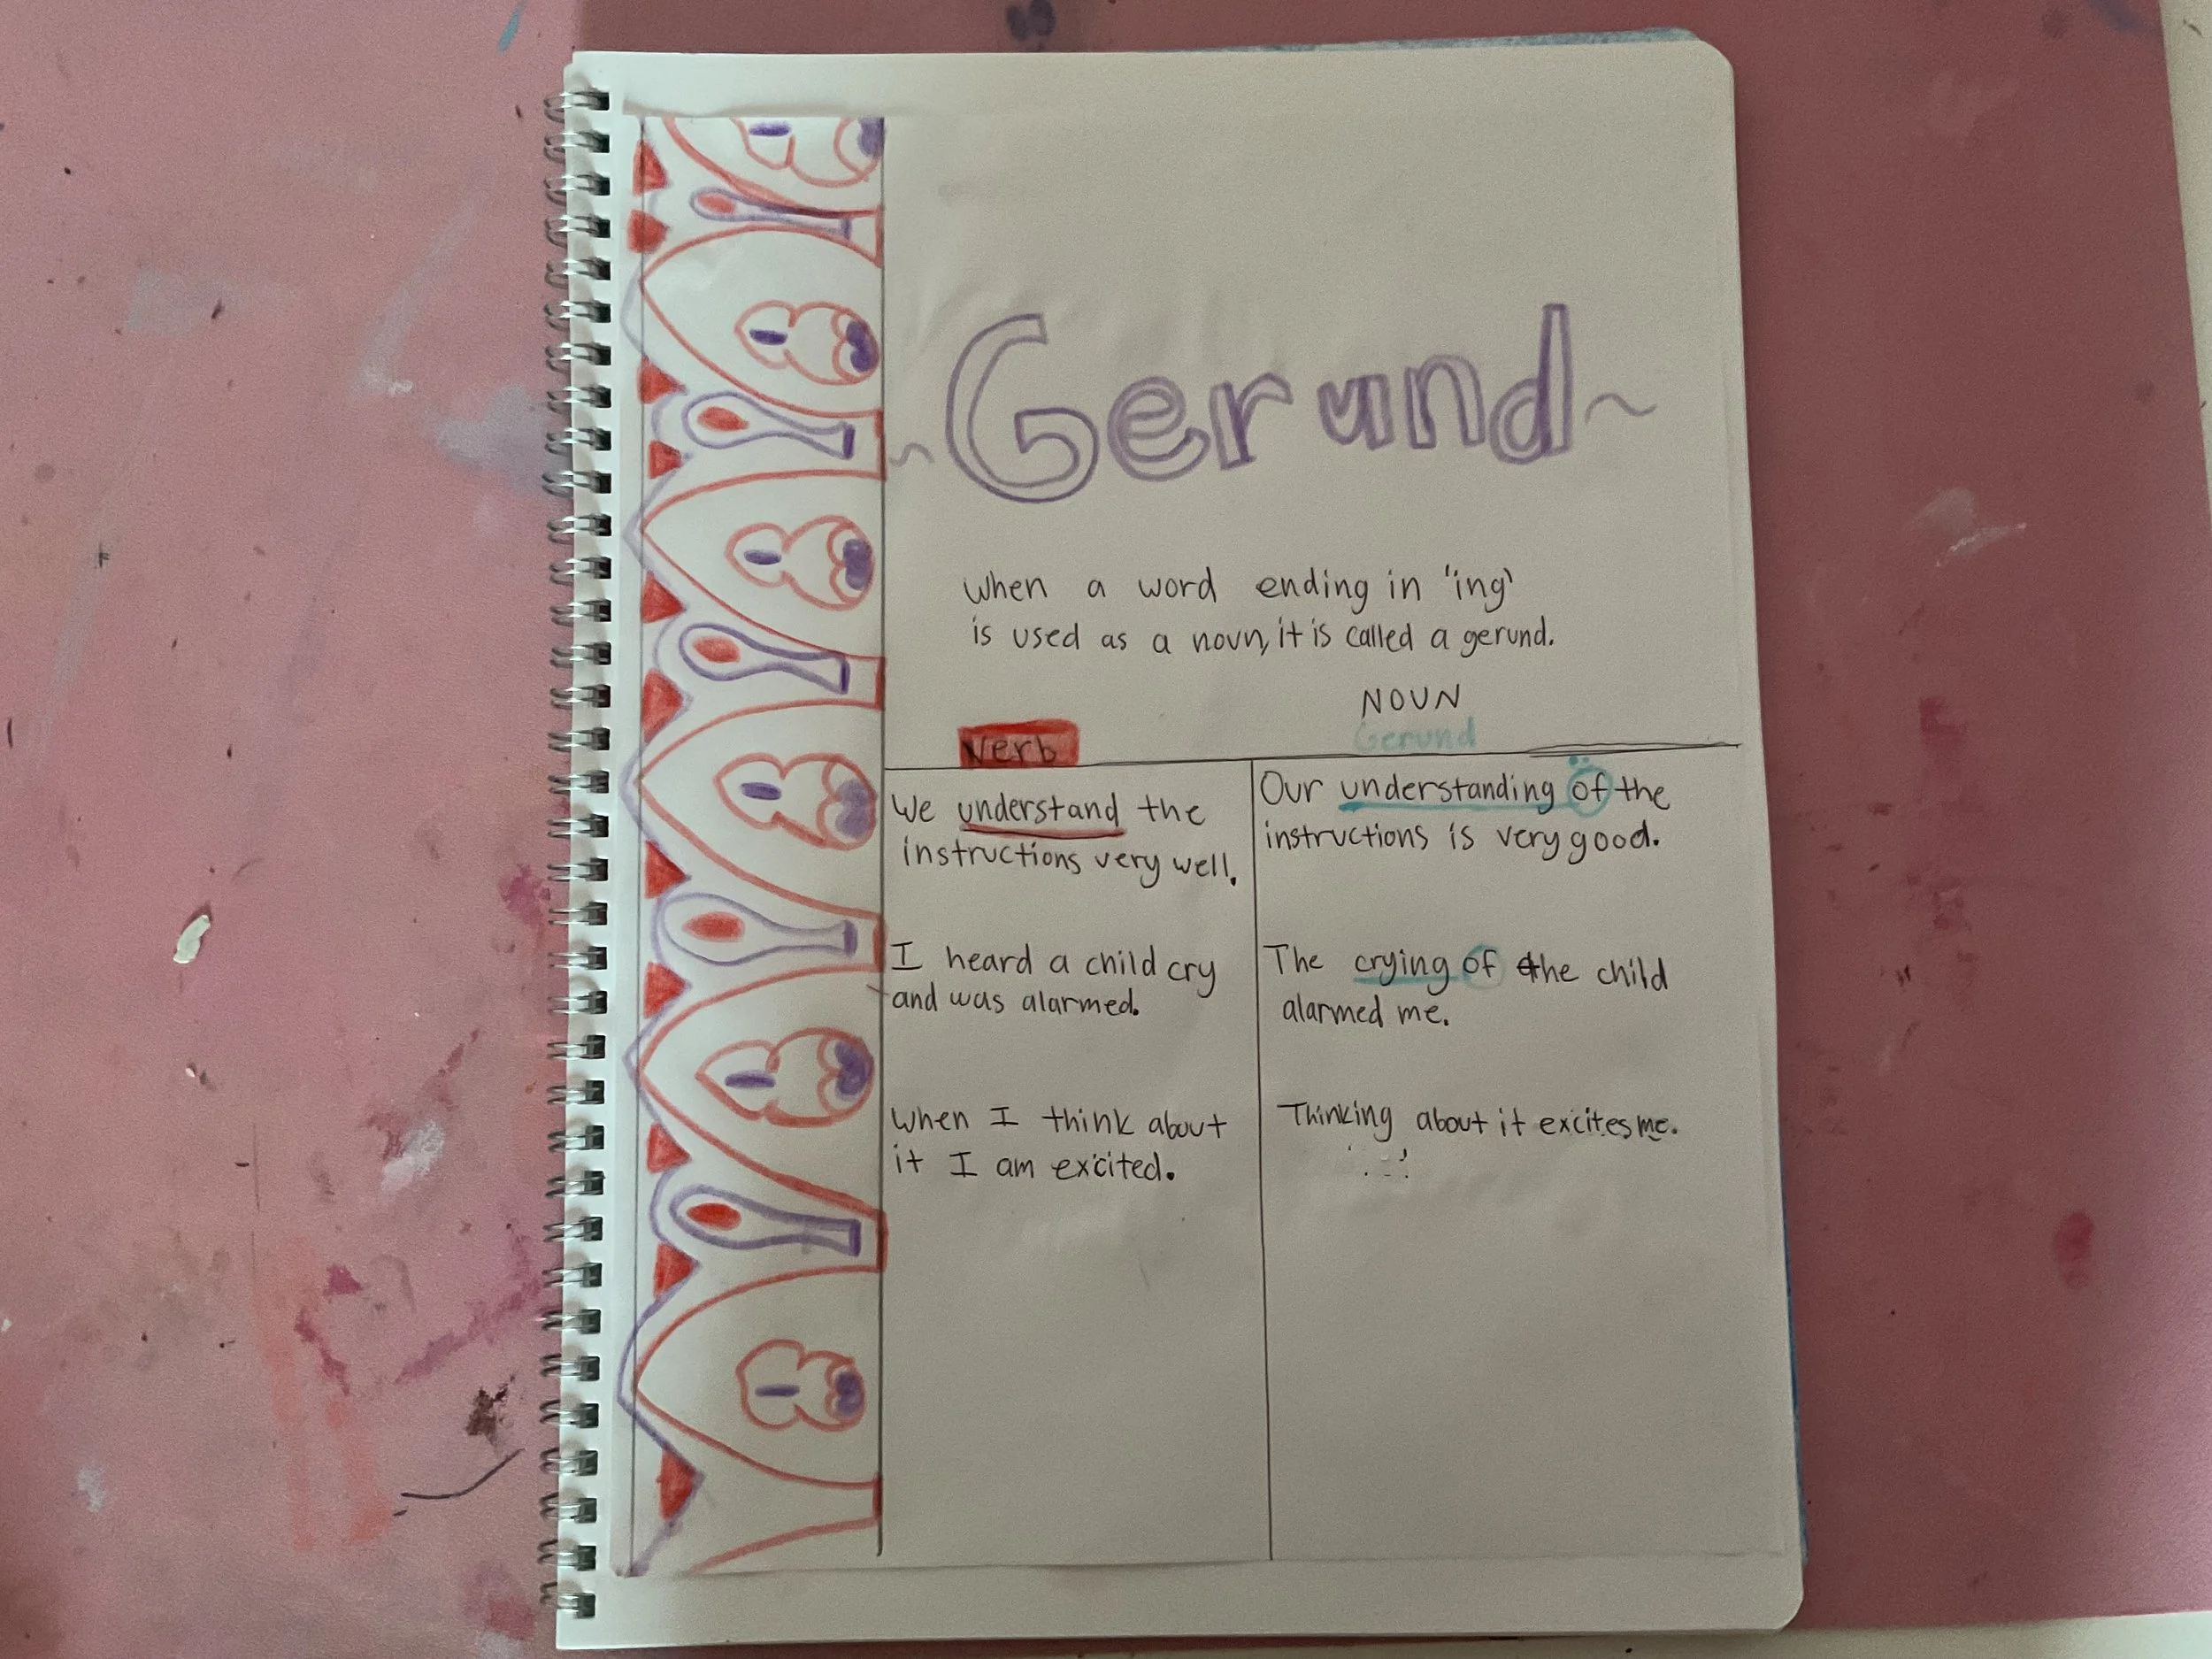 ~Gerund~
When a word ending in 'ing'
is used as a noun, it is called a gerund.
NOUN
Verb
Gerund
We understand the
instructions very well.
Our understanding of the
instructions is very good.
I heard a child cry
and was alarmed.
The crying of the child
alarmed me.
When I think about
it I am excited.
Thinking about it excites me.